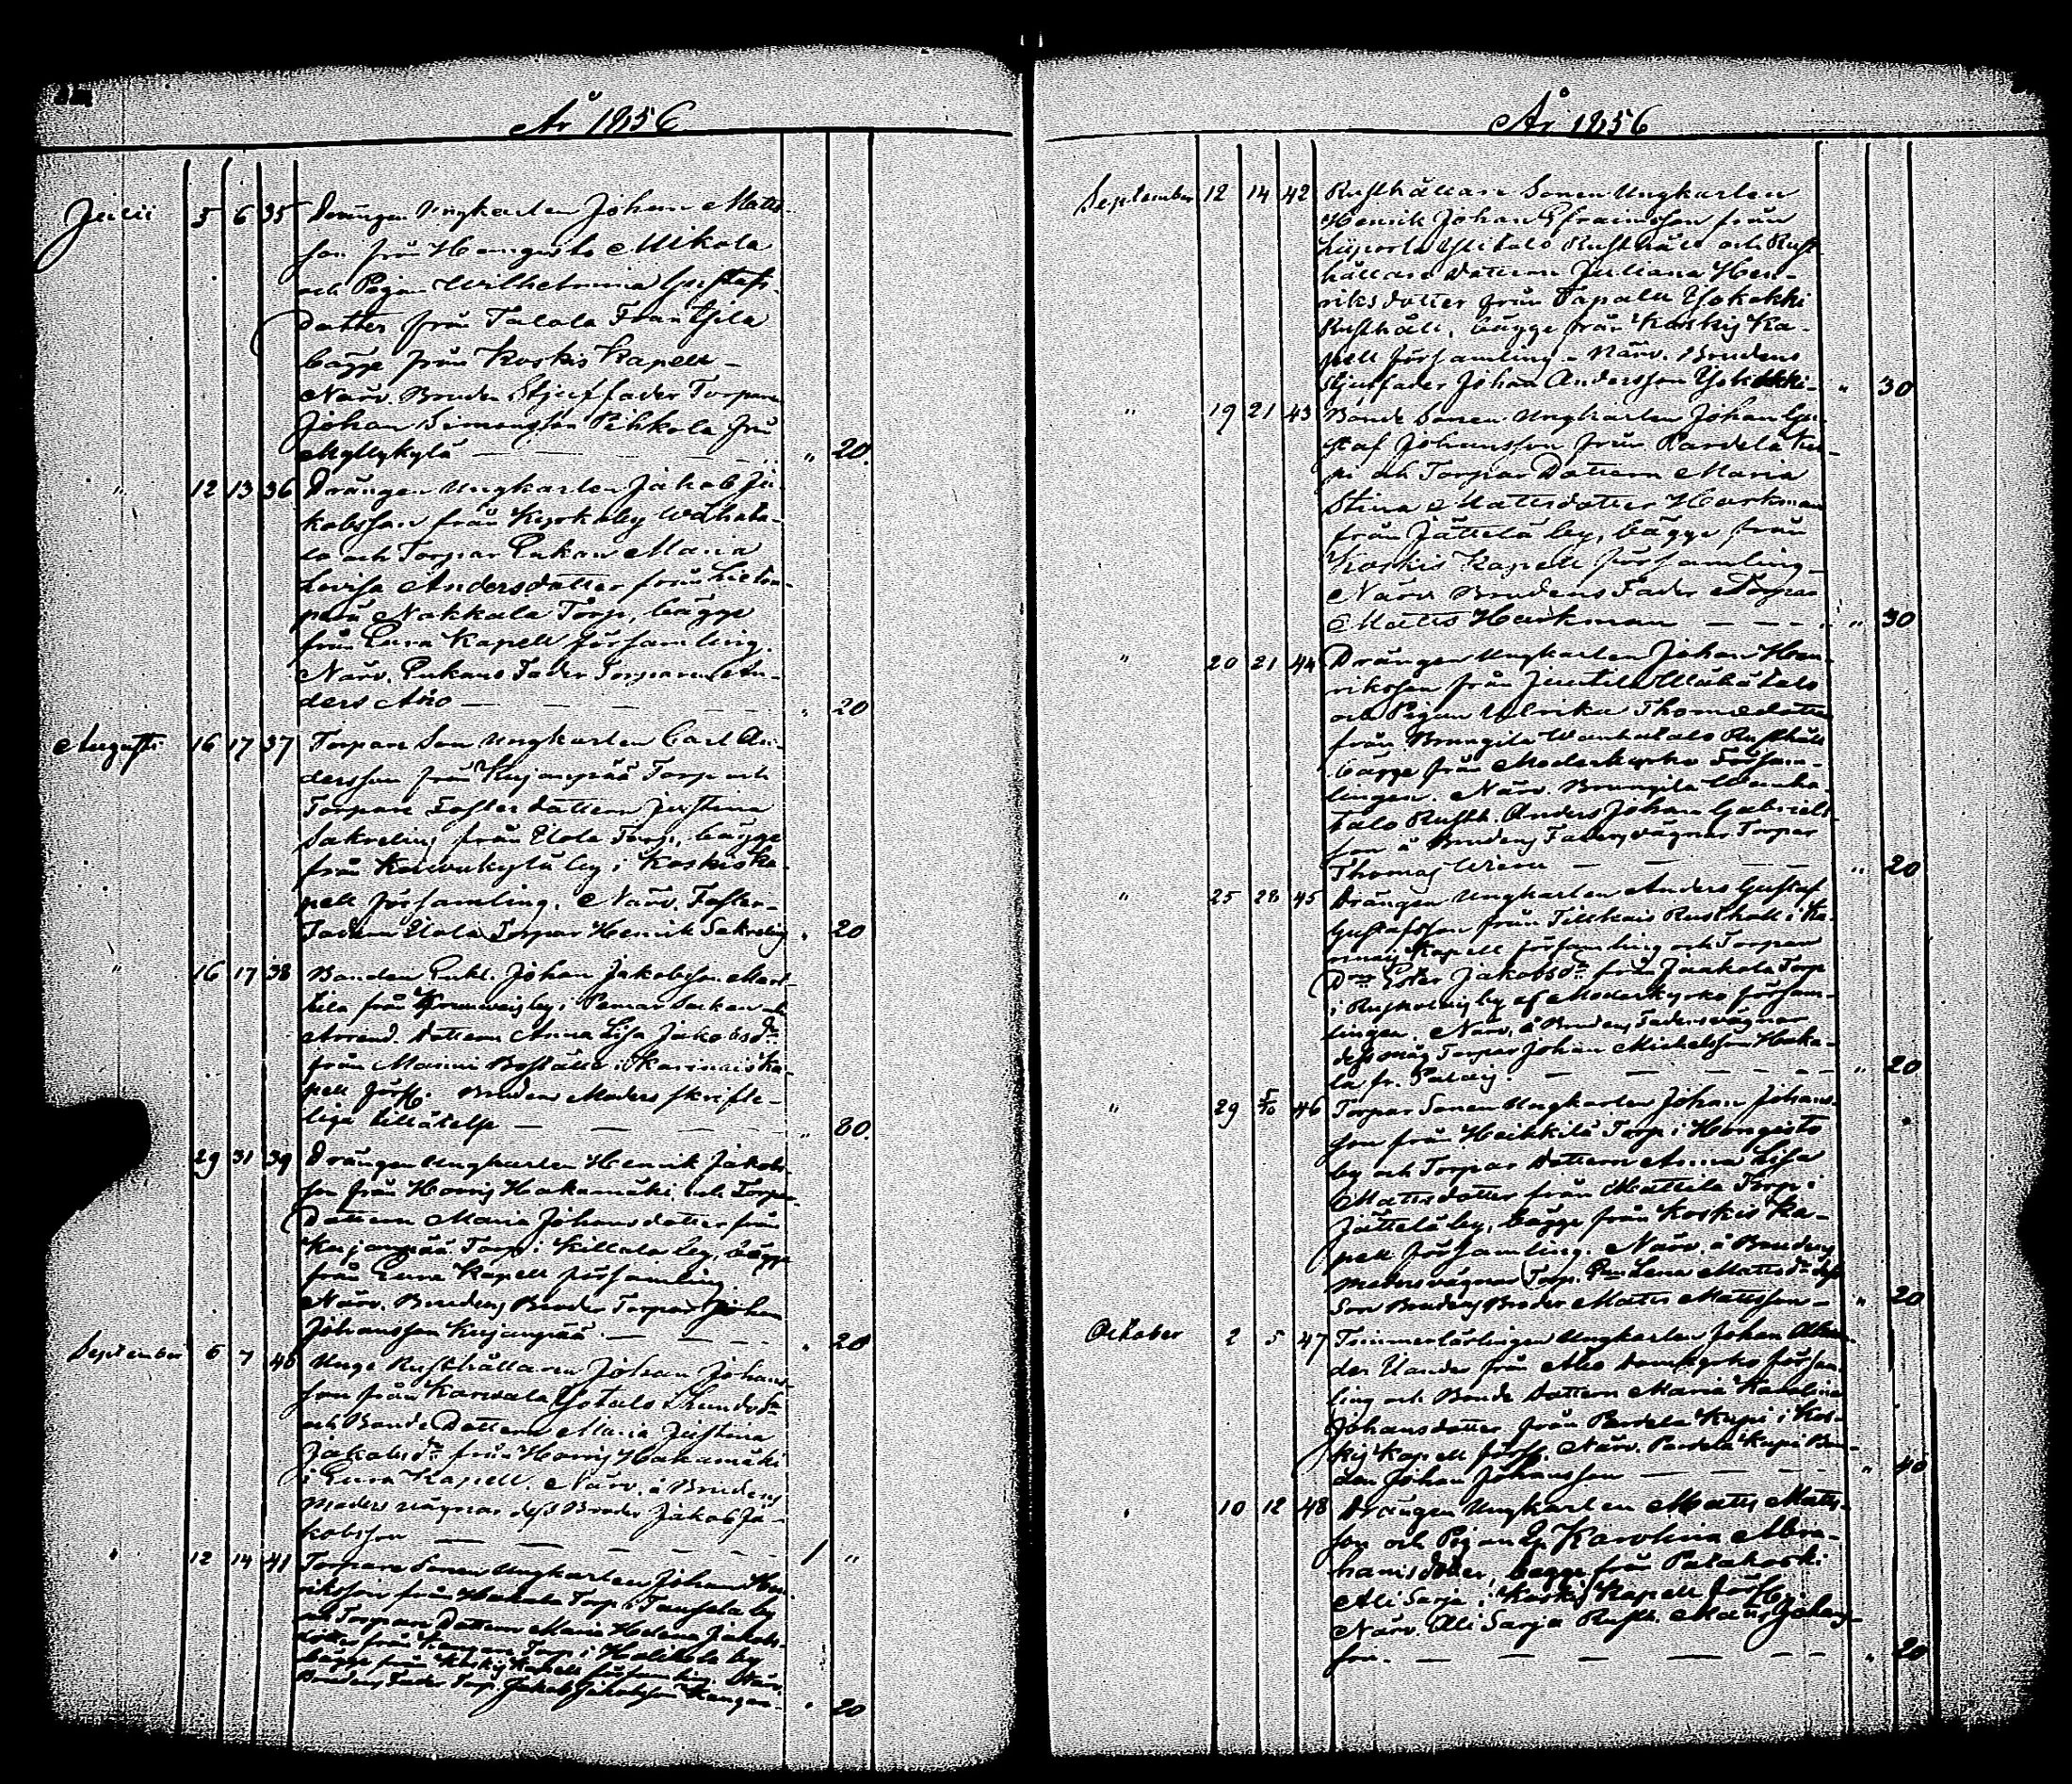 År 1856
Julii 5 6 35 Drängen Ungkarlen Johan Matts-
son från Hongisto Mikola
och Pigan Wilhelmina Gustafs-
dotter från Talola Frantsila
bägge från Koskis Kapell -
Närv. Bruden Stjuffader Torparn
Johan Simonsson Pihkola från
Myllykylä — " 20.
" 12 13 36 Drängen Ungkarlen Jakob Ja-
kobsson från Kyrkoby Wähäta-
lo och Torpar Enkan Maria
Lovisa Andersdotter från
Nakkala Torp, bägge
från Eura Kapell församling.
Närv. Enkans Fader Torparen An-
ders — " 20
Augusti 16 17 37 Torpare Son Ungkarlen Carl An-
dersson från Kujanpää Torp och
Torpare Foster dottern Justina
Sakrelius från Elola Torp, bägge
från by i Koskis Ka-
pell församling. Närv. Foster-
Fadern Elola Torpar Henrik Sakrelius " 20
" 16 17 38 Bonden Enkl. Johan Jakobsson Mart-
tila från by i Pemar Socken och
Arrend. dottern Anna Lisa Jakobsdr
från Boställe i Karinais Ka-
pell förs. Brudens Moders skrift-
liga tillåtelse — " 80.
29 31 39 Drängen Ungkarlen Henrik Jakobs-
son från Horris Hakamäki och Torpar
Dottern Maria Johansdotter från
Kujanpää Torp i Killala by, bägge
från Eura Kapell församling.
Närv. Brudens Broder Torpar Johan
Johansson Kujanpää. — " 20
September 6 7 40 Unge Rusthållaren Johan Johans-
son från Karvala Isotalo
och Bonde Dottern Maria Justina
Jakobsdr från Horris Hakamäki
i Eura Kapell. Närv. å Brudens
Moders vägnar dess Broder Jakob Ja-
kobsson — 1 "
" 12 14 41 Torpare Sonen Ungkarlen Johan Hen-
riksson från Torp i Tausela by
och Torpare Dottern Maria Helena Jakobs-
dotter från Kangas Torp i Halikola by
bägge från Koskis Kapell församling Närv.
Brudens Fader Torp. Jakob Jakobsson Kangas - " 20
År 1856
September 12 14 42 Rusthållare Sonen Ungkarlen
Henrik Johan Efraimsson från
Liipola Ylitalo Rusthåll och Rust-
hållare dottern Juliana Hen-
riksdotter från Tapala Yrkokki
Rusthåll, bägge från Koskis Ka-
pell församling - Närv. Brudens
stjuffader Johan Andersson - " 30
" 19 21 43 Bonde Sonen Ungkarlen Johan Gu-
staf Johansson från Pardela Ku-
pi och Torpar Dottern Maria
Stina Mattsdotter Harkman
från Jättelä by, bägge från
Koskis Kapell församling -
Närv Brudens Fader Torpar
Matts Harkman — " 30
" 20 21 44 Drängen Ungkarlen Johan Hen-
riksson från Juntila Wähätalo
och Pigan Ulrika Thomædotter
från Brungila Wanhatalo Rusthåll
bägge från Moderkyrko Försam-
lingen. Närv. Brungila Wanha-
talo Rusth. Anders Johan Gabriels-
son å Brudens Faders vägnar Torpar
Thomas — " 20
" 25 28 45 Drängen Ungkarlen Anders Gustaf
Gustafsson från Tillkais Rusthåll i Ka-
rinais Kapell församling och Torpare
Dotn Ester Jakobsdr från Jaakola Torp
i by af Moderkyrko försam-
lingen. Närv. å Brudens Faders vägnar
dess måg Torpar Johan Michelsson Haka-
la fr. — " 20
" 29 5/10 46 Torpar Sonen Ungkarlen Johan Johans-
son från Heikkilä Torp i Hongisto
by och Torpar Dottern Anna Lisa
Mattsdotter från Mattila Torp i
Jättelä by, bägge från Koskis Ka-
pell församling. Närv. å Brudens
moders vägnar Torp. Lena Mattsdr dess
Son Brudens Broder Matts Mattsson - " 20
October 2 5 47 Timmerlärlingen Ungkarlen Johan
från Åbo Domkyrko försam-
ling och Bonde dottern Maria Karolina
Johansdotter från Pardela Kupi i Kos-
kis Kapell förs. Närv. Pardela Kupi Bon-
den Johan Johansson — " 40
" 10 12 48 Drängen Ungkarlen Matts Matts-
son och Pigan Karolina Abra-
hamsdotter, bägge från Patakoski
Ali Sarja i Koskis Kapell förs.
Närv. Ali Sarja Rusth. Matts Johans-
son. — " 20